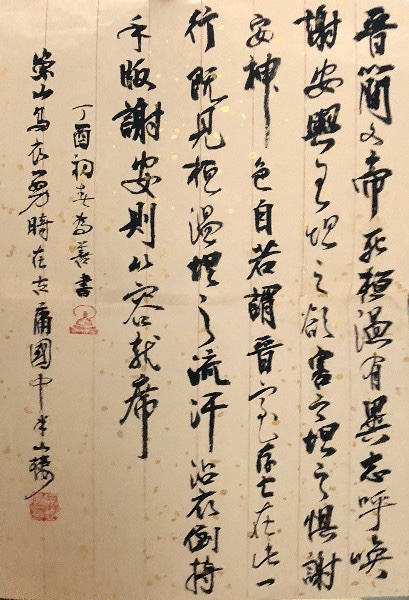 晋簡文帝死桓温有異志呼喚
謝安與王坦之欲害之坦之惧謝
安神色自若謂晋室存亡在此一
行既見桓温坦之流汗沾衣倒持
手版謝安則从容就席
丁酉初春為善書
崇山烏衣勇時在古庸國中半山樓